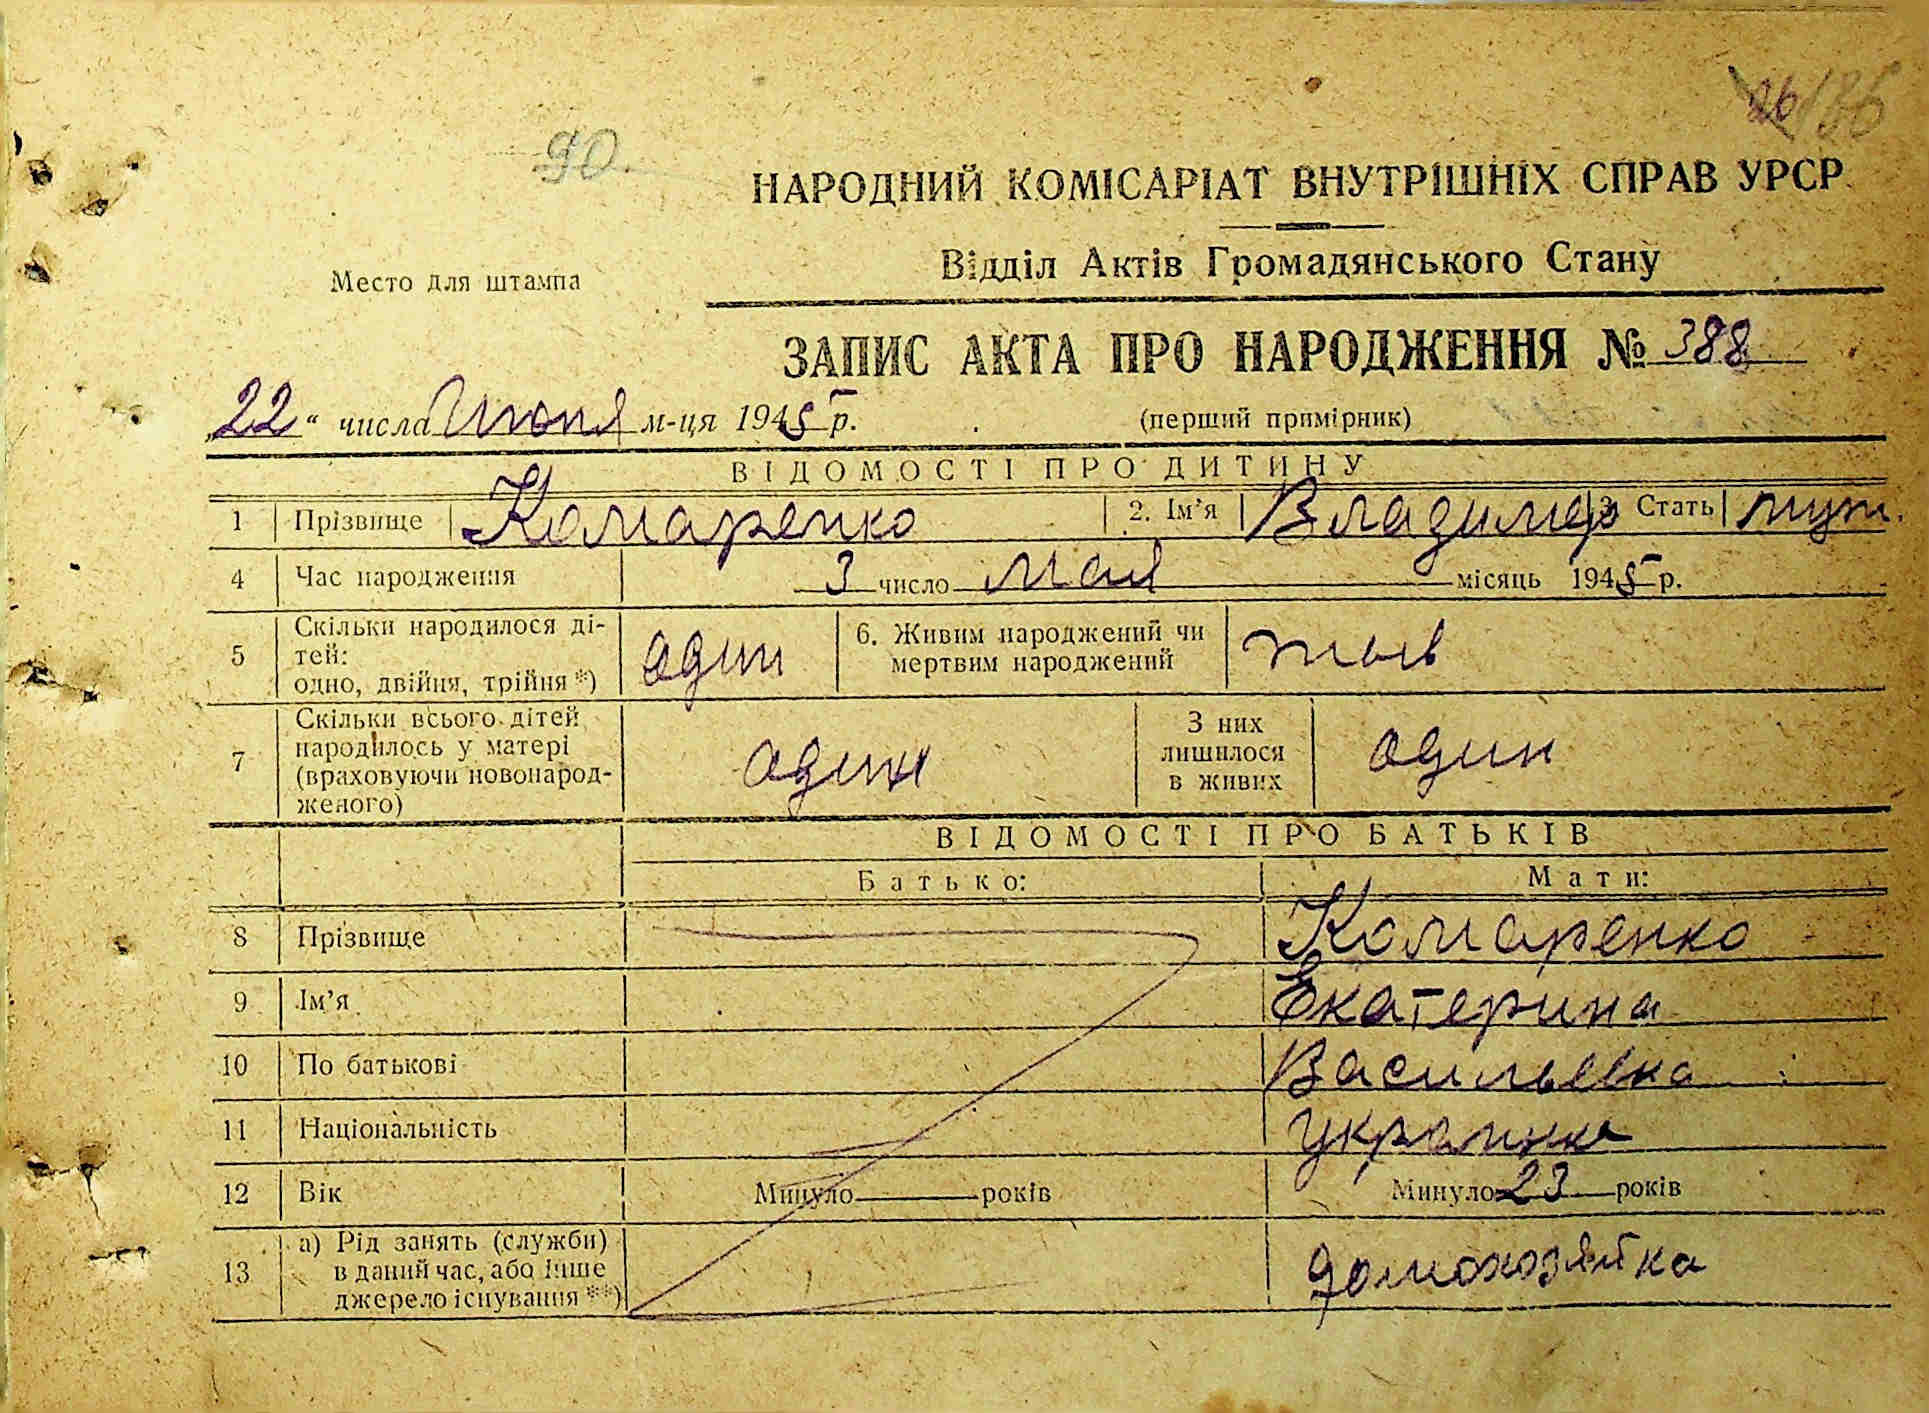 26 186
90.
НАРОДНИЙ КОМІСАРІАТ ВНУТРІШНІХ СПРАВ УРСР
Відділ Актів Громадянського Стану
Место для штампа
ЗАПИС АКТА ПРО НАРОДЖЕННЯ № 388
„22" числа Июня м-ця 1945 р.
(перший примірник)
ВІДОМОСТІ ПРО ДИТИНУ
1 Прізвище Комаренко 2. Ім'я Владимир 3. Стать муж.
4 Час народження 3 число мая місяць 1945 р.
5 Скільки народилося ді-
тей:
одно, двійня, трійня *) один 6. Живим народжений чи
мертвим народжений жив
7 Скільки всього дітей
народилось у матері
(враховуючи новонарод-
женого) один З них
лишилося
в живих один
ВІДОМОСТІ ПРО БАТЬКІВ
Батько: Мати:
8 Прізвище Комаренко
9 Ім'я Екатерина
10 По батькові Васильевна
11 Національність украинка
12 Вік Минуло років Минуло 23 років
13 а) Рід занять (служби)
в даний час, або інше
джерело існування **) домохозяйка